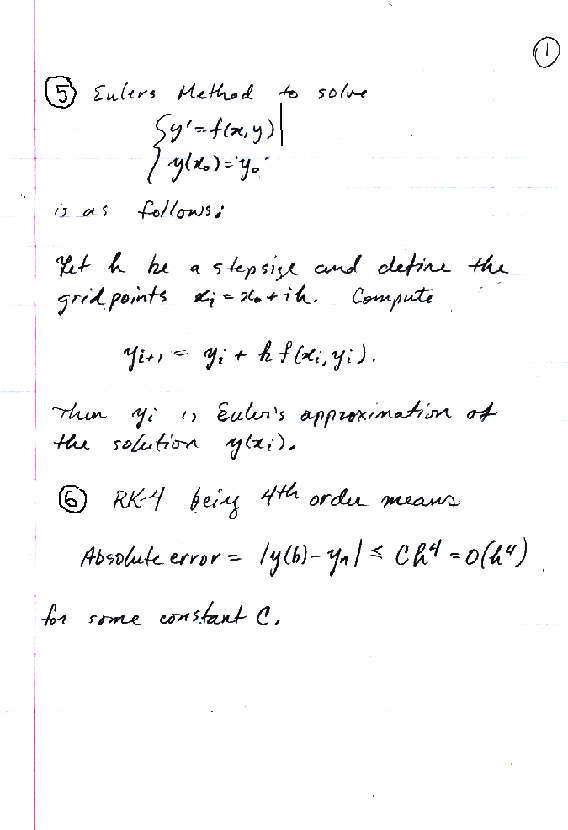 ①
⑤ Eulers Method to solve
{ y' = f(x, y)
y(x₀) = y₀
is as follows:
Let h be a stepsize and define the
gridpoints xᵢ = x₀ + ih. Compute
yᵢ₊₁ = yᵢ + h f(xᵢ, yᵢ).
Then yᵢ is Euler's approximation of
the solution y(xᵢ).
⑥ RK-4 being 4th order means
Absolute error = |y(b) - yₙ| ≤ Ch⁴ = O(h⁴)
for some constant C.